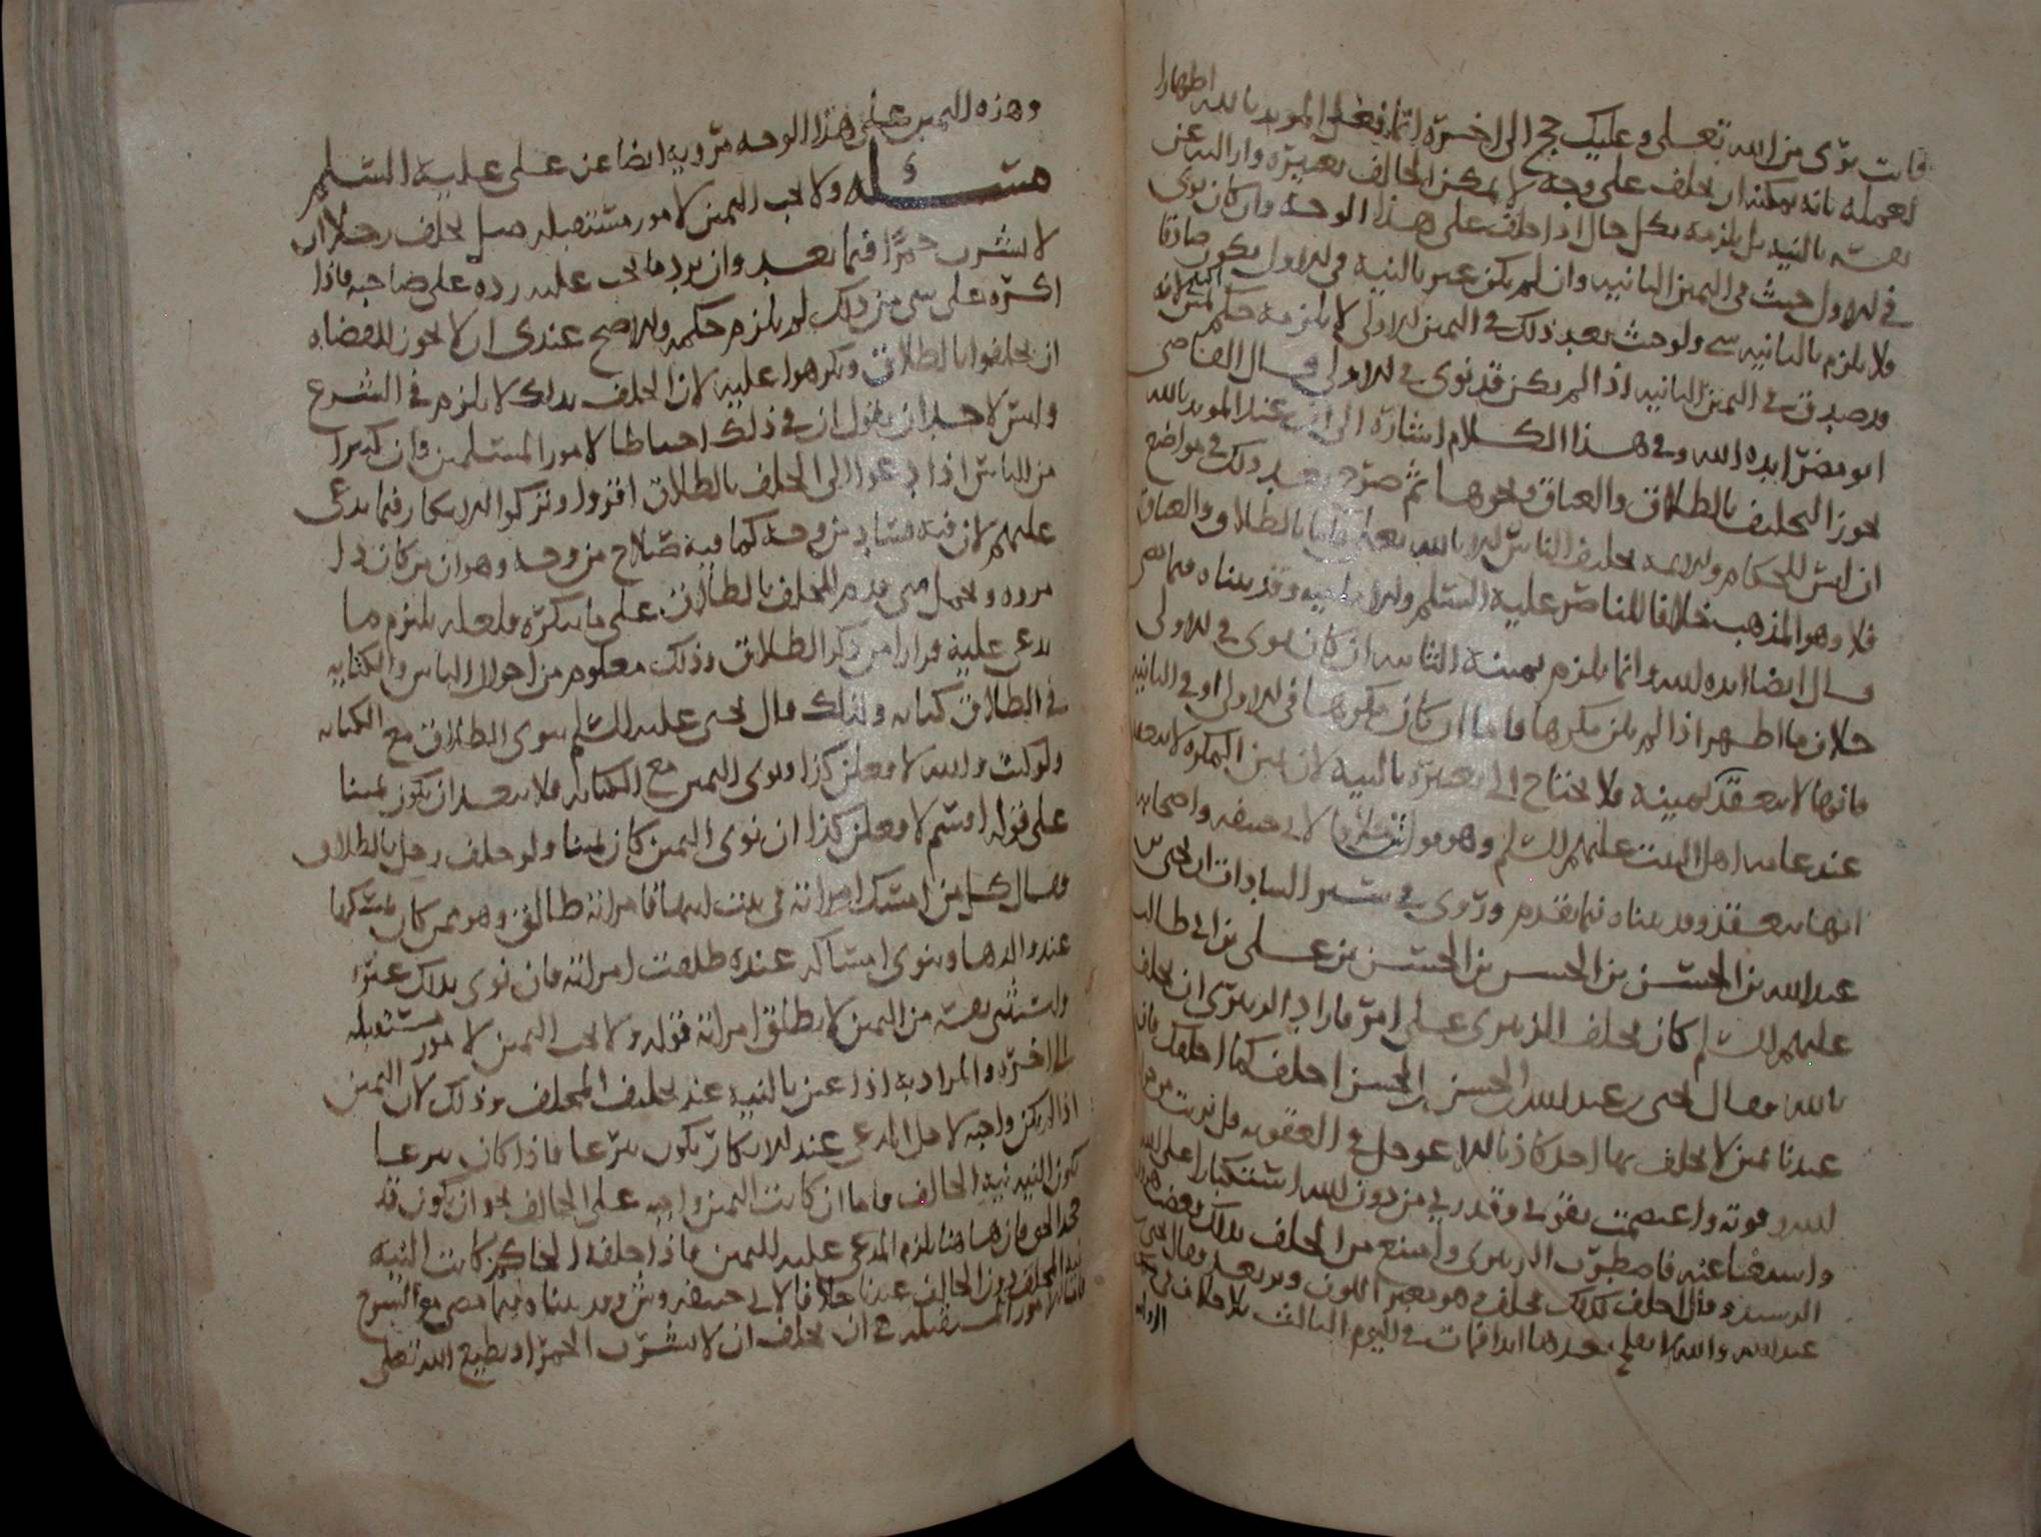 فانت بريء من الله تعلى وعليك حجج الى اخره انما فعل المويد بالله اظهارا
لعمله بانه يمكنه ان يحلف على وجه لا يمكن الحالف تعييره واراد عن
نفسه بالنيه بل يلزمه بكل حال اذا حلف على هذا الوجه وان كان نوى
في الاول حنث في اليمين الثانيه وان لم يكن عبر بالنية في الاول يكون صادقا
فلا يلزم بالثانيه شي ولو حنث بعد ذلك في اليمين الاولى لا يلزمه حكم لانه
قد صدق في اليمين الثانيه اذا لم يكن قد نوى في الاولى وقال القاضي
ابو مضر ايده الله وفي هذا الكلام اشارة الى ان عند المويد بالله
يجوز التحليف بالطلاق والعتاق ونحوها ثم صرح بعد ذلك في مواضع
ان ليس للحكام والايمه تحليف الناس الا بالله تعلى فاما بالطلاق والعتاق
فلا وهو المذهب خلافا للناصر عليه السلم والاماميه وقد بيناه فيما مضى
قال ايضا ايده الله وانما يلزم يمينه الثانيه ان كان نوى في الاولى
خلاف ما اظهر اذا لم يكن مكرها فاما ان كان مكرها في الاولى او في الثانيه
فانها لا تنعقد يمينه فلا يحتاج الى تعييره بالنية لان يمين المكره لا تنعقد
عند علماء اهل البيت عليهم السلم وهو قول ش خلافا لابي حنيفه واصحابه
انها تنعقد وقد بيناه فيما تقدم وروي في سير السادات ان يحيى بن
عبد الله بن الحسن بن الحسن بن الحسن بن علي بن ابي طالب
عليهم السلم كان يحلف الزبيري على امر فاراد الزبيري ان يحلف
بالله فقال يحيى بن عبد الله بن الحسن بن الحسن احلف كما احلفك فان
عندنا يمين لا يحلف بها احد كاذبا الا عوجل في العقوبه قل برئت من حول
الله وقوته واعتصمت بقوتي وقدرتي من دون الله استكبارا على الله
واستغنا عنه فاضطرب الزبيري وامتنع من الحلف بذلك فغضب هرون
الرشيد وقال احلف كذلك فحلف وهو متغير اللون ويرتعد وقال يحيى بن
عبد الله والله لا يفلح بعدها ابدا فمات في اليوم الثالث بلا خلاف في
الرواه
وهذه اليمين على هذا الوجه مروية ايضا عن علي عليه السلم
مسئله ولا تجب اليمين لامور مستقبله مثل يحلف رجلا ان
لا يشرب خمرا فيما بعد وان يرد ما يجب عليه رده على صاحبه فاذا
اكره على شي من ذلك لم يلزم حكمه والاصح عندي ان لا يجوز للقضاه
ان يحلفوا بالطلاق ويكرهوا عليه لان الحلف بذلك لا يلزم في الشرع
وليس لاحد ان يقول ان في ذلك احتياطا لامور المسلمين فان كثيرا
من الناس اذا دعوا الى الحلف بالطلاق اقروا وتركوا الانكار فيما يدعى
عليهم لان فيه فساد من وجه كما فيه صلاح من وجه وهو ان من كان ذا
مروه ويحمل متى قدم للحلف بالطلاق على ما يكره فلعله يلتزم ما
يدعى عليه فرارا من ذكر الطلاق وذلك معلوم من احوال الناس والكنايه
في الطلاق كنايه ولذلك قال يحيى عليه السلم ينوى الطلاق مع الكتابه
ولو كتب والله لا فعلن كذا ونوى اليمين مع الكتابه فلا يبعد ان يكون يمينا
على قوله اقسم لا فعلن كذا ان نوى اليمين كان يمينا ولو حلف رجل بالطلاق
فقال كل من امسك امراته في بيت ابيها فامراته طالق وهو ممن كان يمسكها
عند والدها ونوى امساكه عنده طلقت امراته فان نوى بذلك غيره
واستثنى نفسه من اليمين لا يطلق امراته قوله ولا تجب اليمين لامور مستقبله
الى اخره والمراد به اذا عين بالنيه عند تحليف المحلف وذلك لان اليمين
اذا لم يكن واجبه لاجل المدعي عند الانكار يكون تبرعا فاذا كان تبرعا
يكون النيه نية الحالف فاما ان كانت اليمين واجبه على الحالف نحو ان يكون قد
جحد الحق فان هاهنا يلزم المدعى عليه اليمين فاذا حلفه الحاكم كانت النيه
نية المحلف دون الحالف عندنا خلافا لابي حنيفه وش وقد بيناه فيما مضى مع الشرح
فاما الامور المستقبله نحو ان يحلف ان لا يشرب الخمر او يطيع الله تعلى